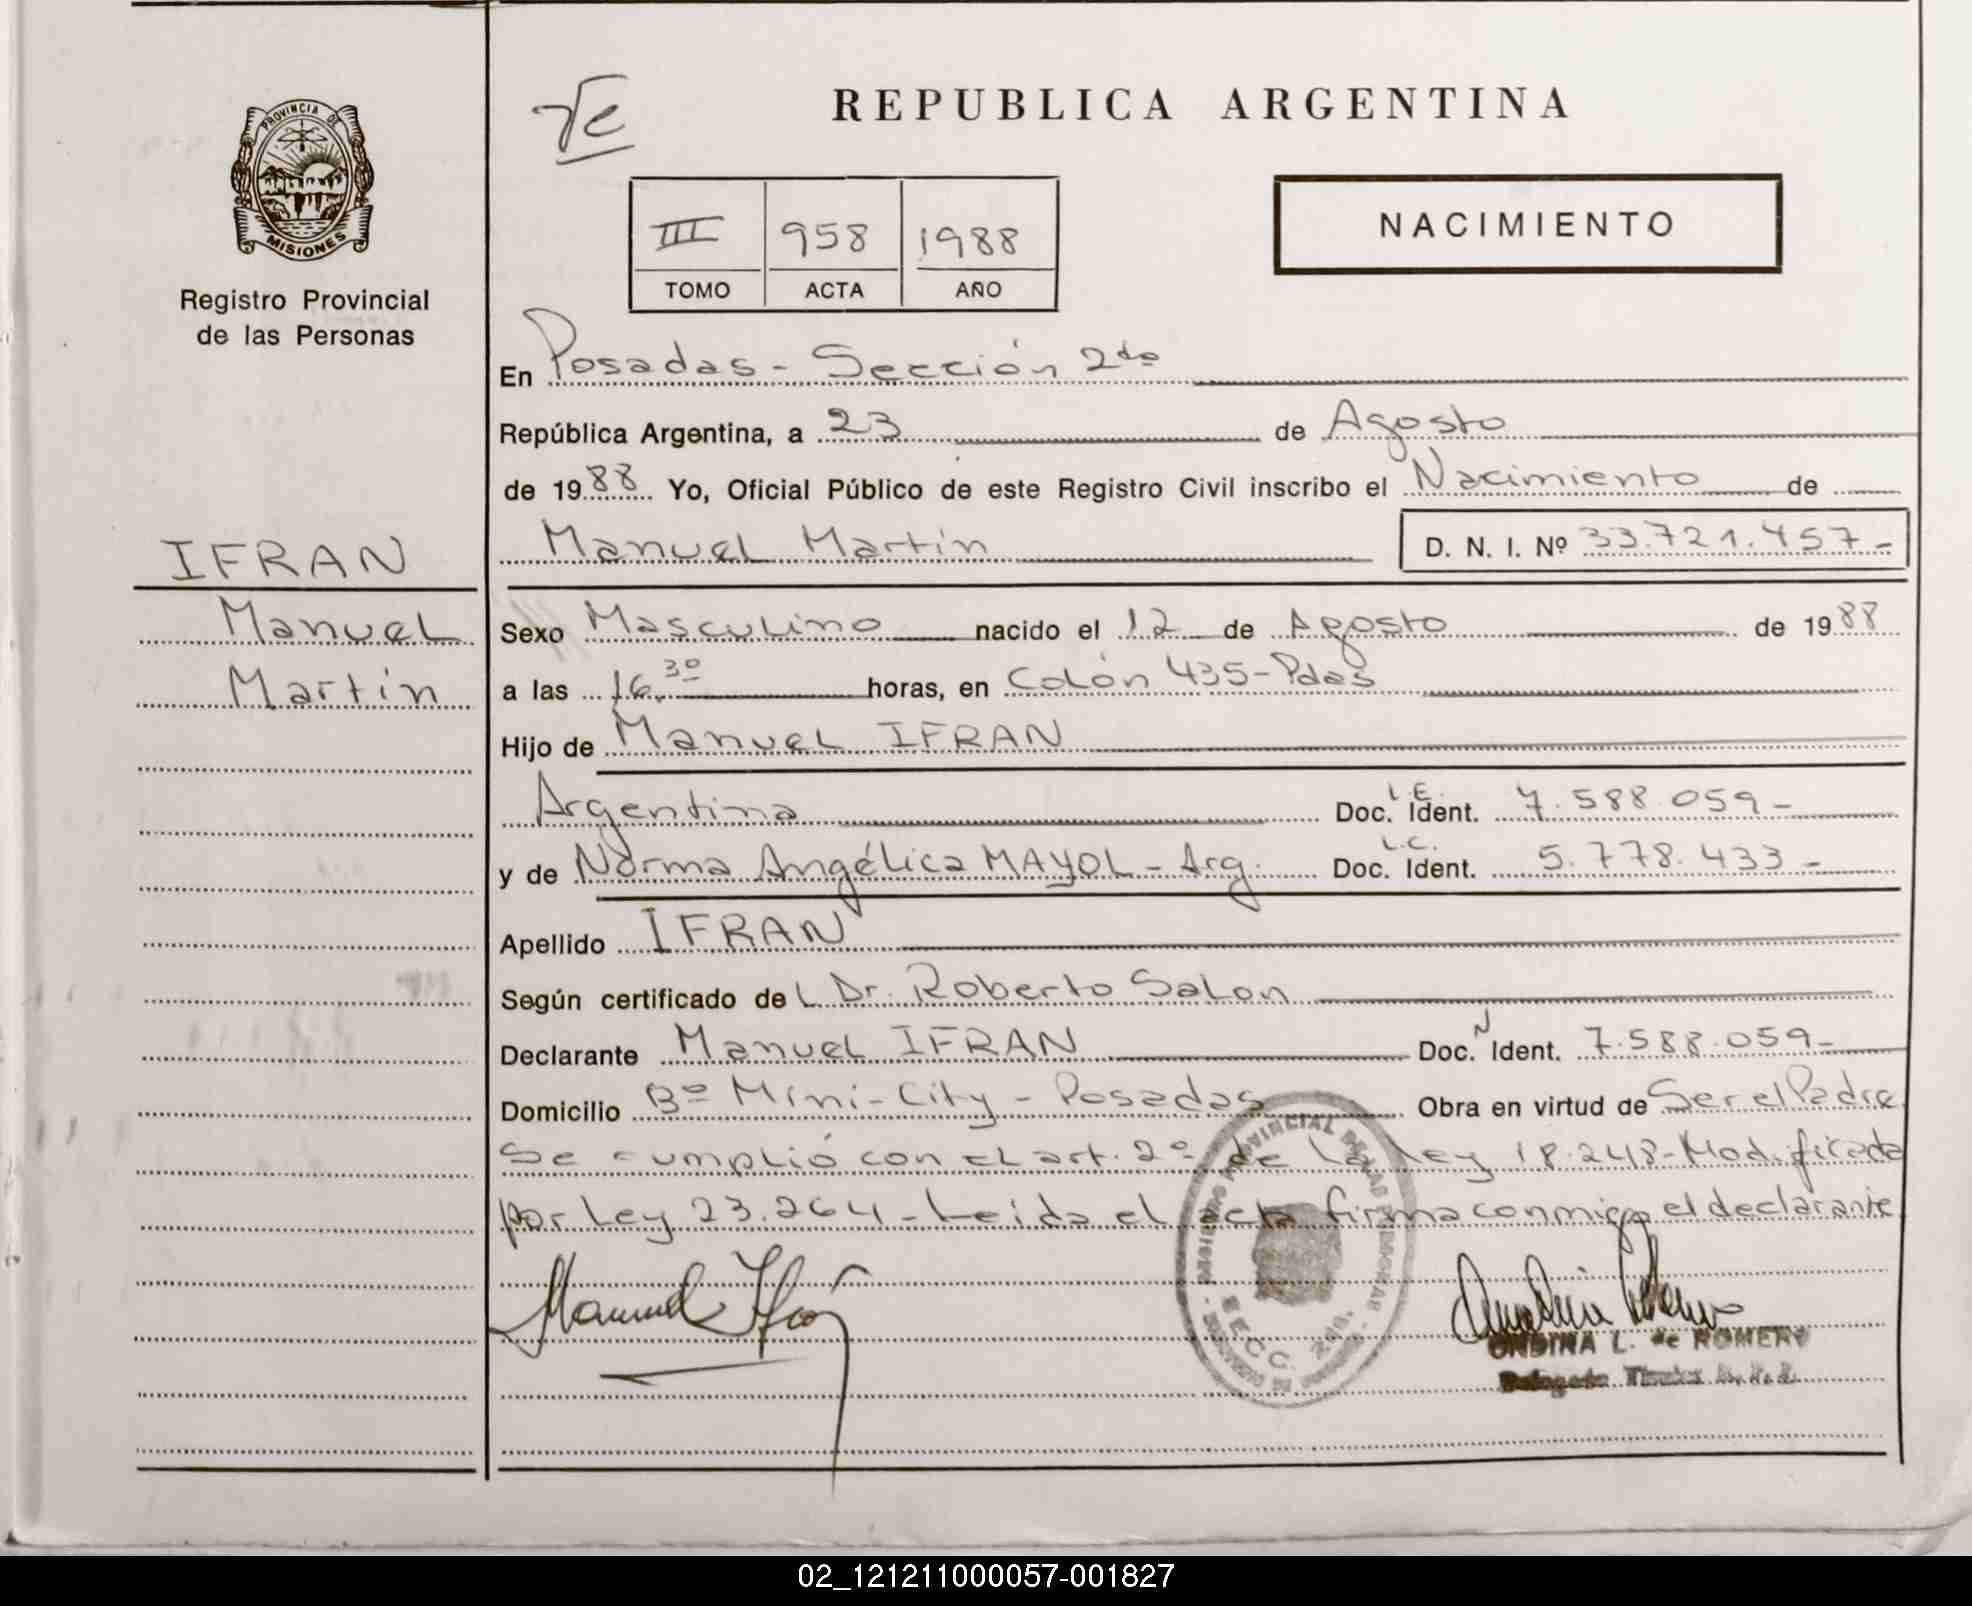 PROVINCIA DE
MISIONES
Registro Provincial
de las Personas
IFRAN
Manuel
Martín
REPUBLICA ARGENTINA
NACIMIENTO
III 958 1988
TOMO ACTA AÑO
En Posadas - Sección 2da
República Argentina, a 23 de Agosto
de 1988 Yo, Oficial Público de este Registro Civil inscribo el Nacimiento de
Manuel Martín D. N. I. Nº 33.721.457-
Sexo Masculino nacido el 12 de Agosto de 1988
a las 16.30 horas, en Colón 435-Pdas
Hijo de Manuel IFRAN
Argentina Doc. L.E. Ident. 7.588.059-
y de Norma Angélica MAYOL - Arg. Doc. L.C. Ident. 5.778.433-
Apellido IFRAN
Según certificado del Dr. Roberto Salon
Declarante Manuel IFRAN Doc. N Ident. 7.588.059-
Domicilio Bº Mini-City - Posadas Obra en virtud de Ser el Padre
Se cumplió con el art. 2º de la Ley 18.248-Modificada
por Ley 23.264 - Leída el acta firma conmigo el declarante
Manuel Ifrán
SECC. 2da.
ONDINA L. de ROMERO
02_121211000057-001827